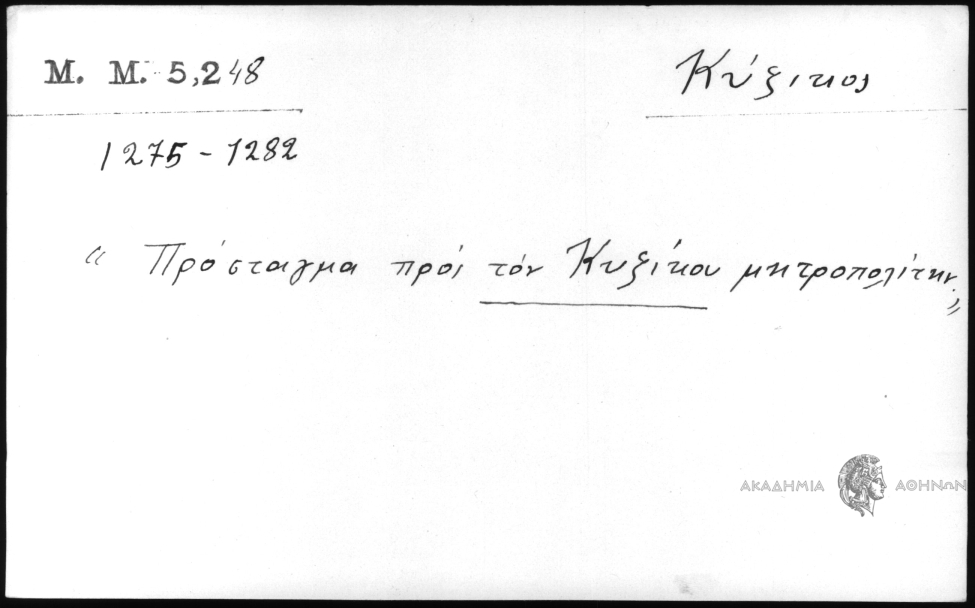 M. M. 5,248
Κύζικος
1275 - 1282
"Πρόσταγμα πρός τόν Κυζίκου μητροπολίτην."
ΑΚΑΔΗΜΙΑ ΑΘΗΝΩΝ